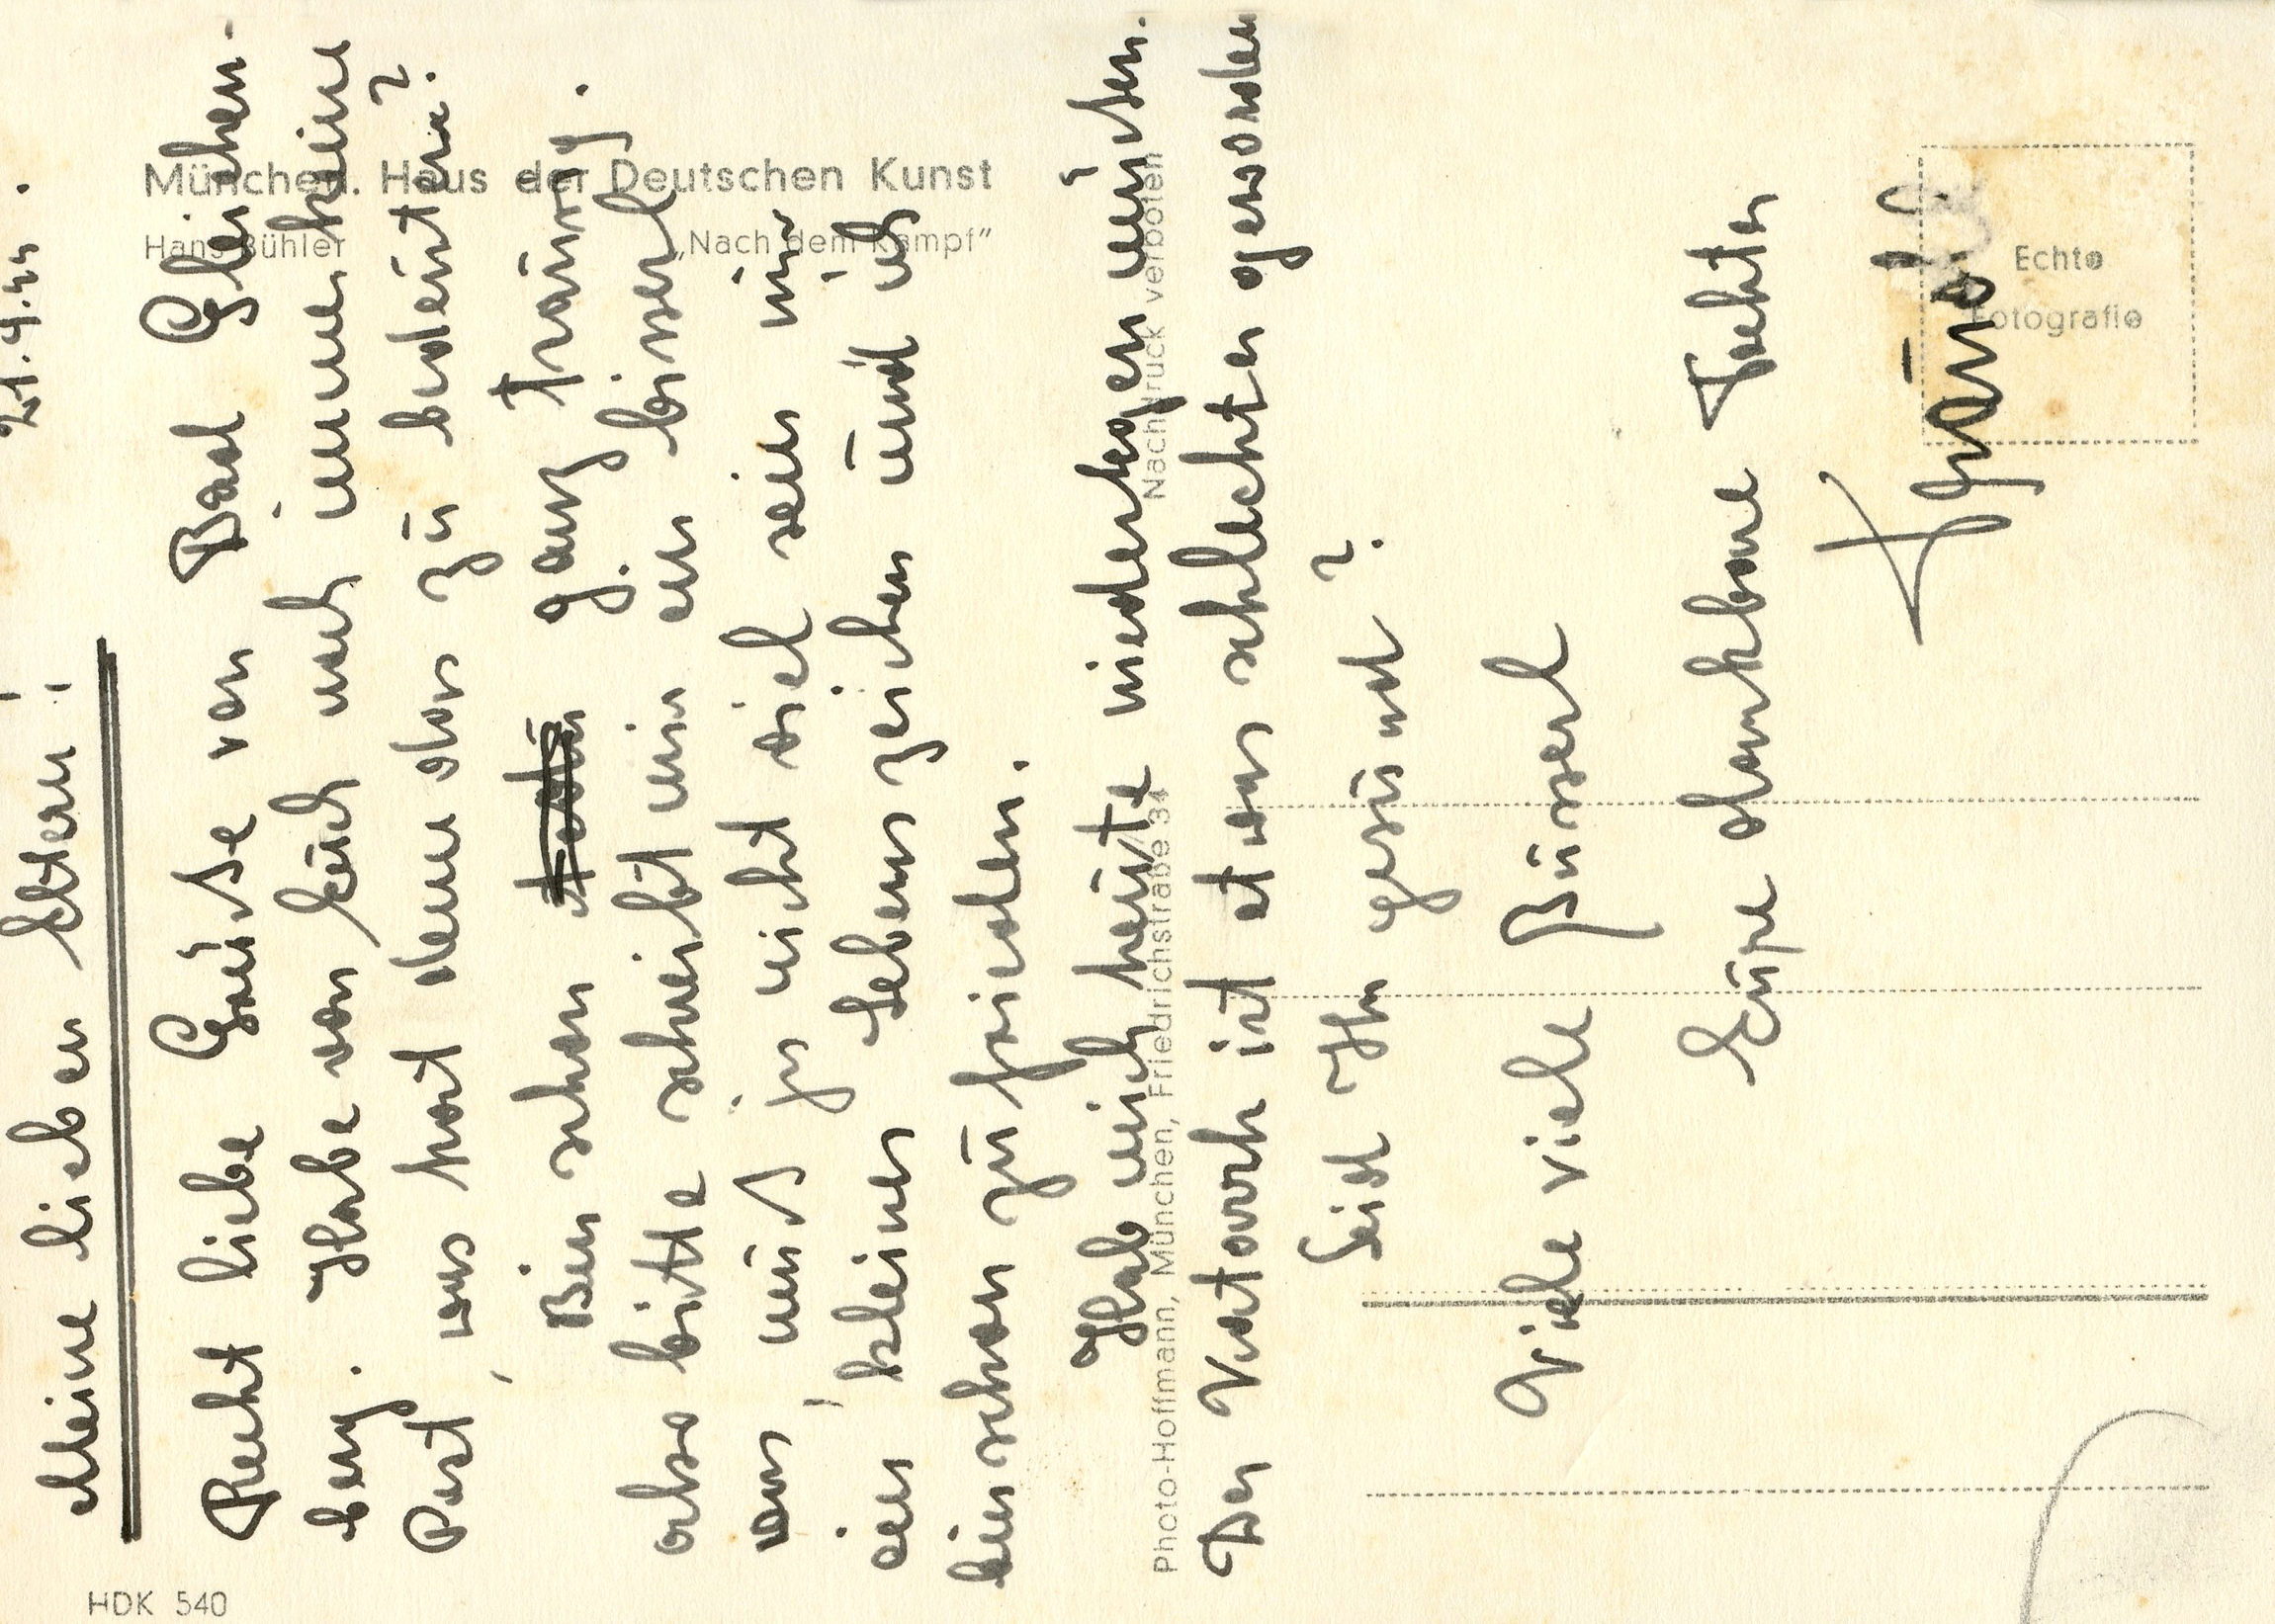 21.9.44.
Meine lieben Eltern!
Recht liebe Grüße von Bad Gleichen-
berg. Habe von Euch noch immer keine
Post, was hat denn das zu bedeuten?
Bin schon ganz traurig.
also bitte schreibt mir ein bisserl
was, muß ja nicht viel sein nur
ein kleines Lebenszeichen und ich
bin schon zufrieden.
Hab mich heute niederlegen müssen.
Der Katarrh ist etwas schlechter geworden
Seid Ihr gesund?
Viele viele Busserl
Eure dankbare Tochter
München. Haus der Deutschen Kunst
Hans Bühler „Nach dem Kampf“
Photo-Hoffmann, München, Friedrichstraße 34 Nachdruck verboten
Echte
Fotografie
HDK 540